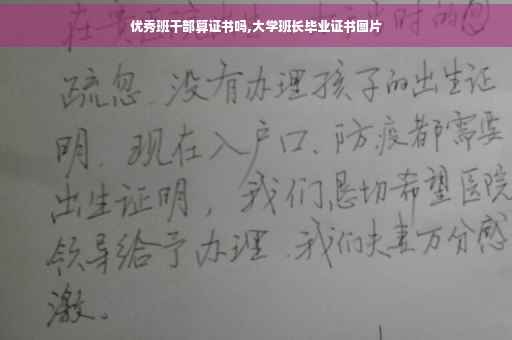 优秀班干部算证书吗,大学班长毕业证书图片
在贵 时的
疏忽、没有办理孩子的出生证
明、现在入户口、防疫都需要
出生证明，我们恳切希望医院
领导给予办理、我们夫妻万分感
激。